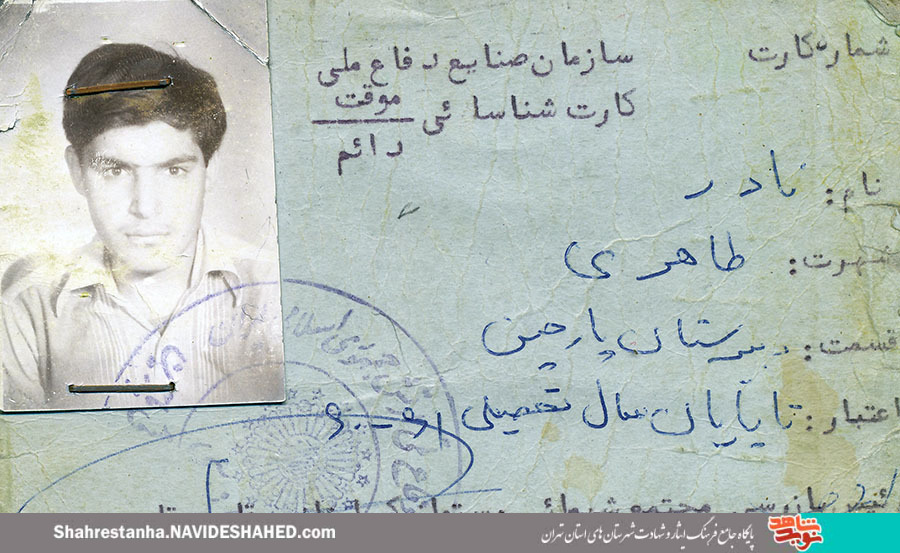 شماره کارت
سازمان صنایع دفاع ملی
کارت شناسائی موقت
دائم
نام: نادر
شهرت: طاهری
قسمت: دبیرستان پارچین
اعتبار: تا پایان سال تحصیلی ۶۱-۶۰
جمهوری اسلامی
Shahrestanha.NAVIDESHAHED.com
پایگاه جامع فرهنگ ایثار و شهادت شهرستان های استان تهران
نوید شاهد